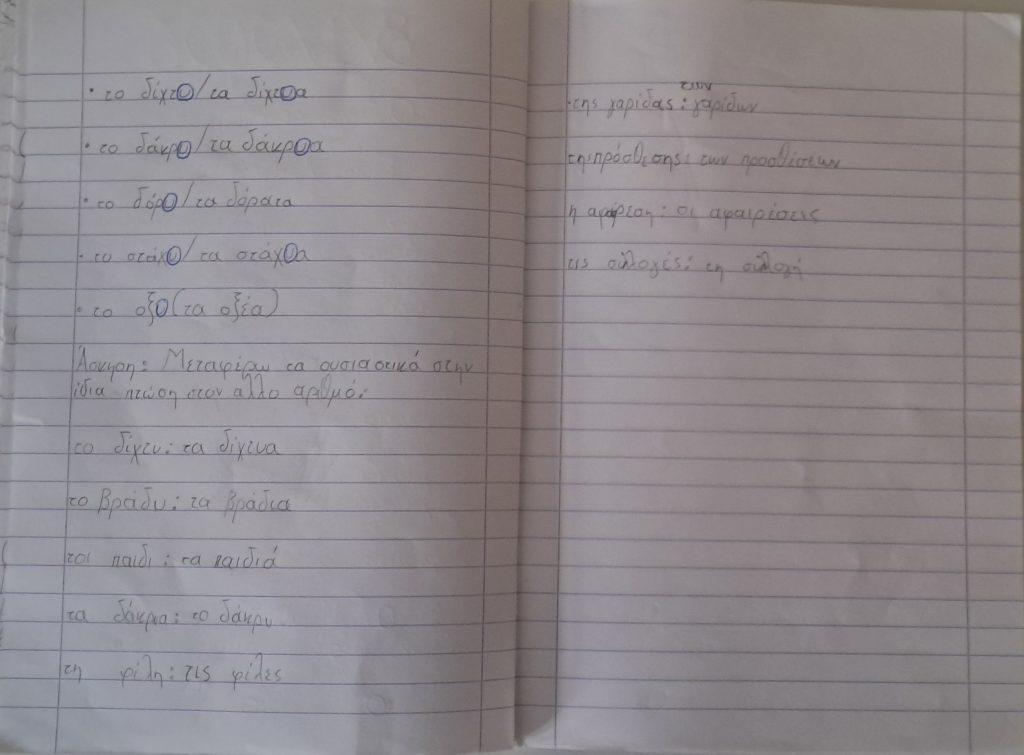 · το δίχτυ/τα δίχτυα
· το δάκρυ/τα δάκρυα
· το δόρυ/τα δόρατα
· το στάχυ/τα στάχυα
· το οξύ(τα οξέα)
Άσκηση: Μεταφέρω τα ουσιαστικά στην
ίδια πτώση στον άλλο αριθμό:
το δίχτυ: τα δίχτυα
το βράδυ: τα βράδια
το παιδι: τα παιδιά
τα δάκρια: το δάκρυ
τη φίλη: τις φίλες
των
·της γαρίδας: γαρίδων
της πρόσθεσης: των προσθέσεων
η αφαίρεση: οι αφαιρέσεις
τις συλλογές: τη συλλογή